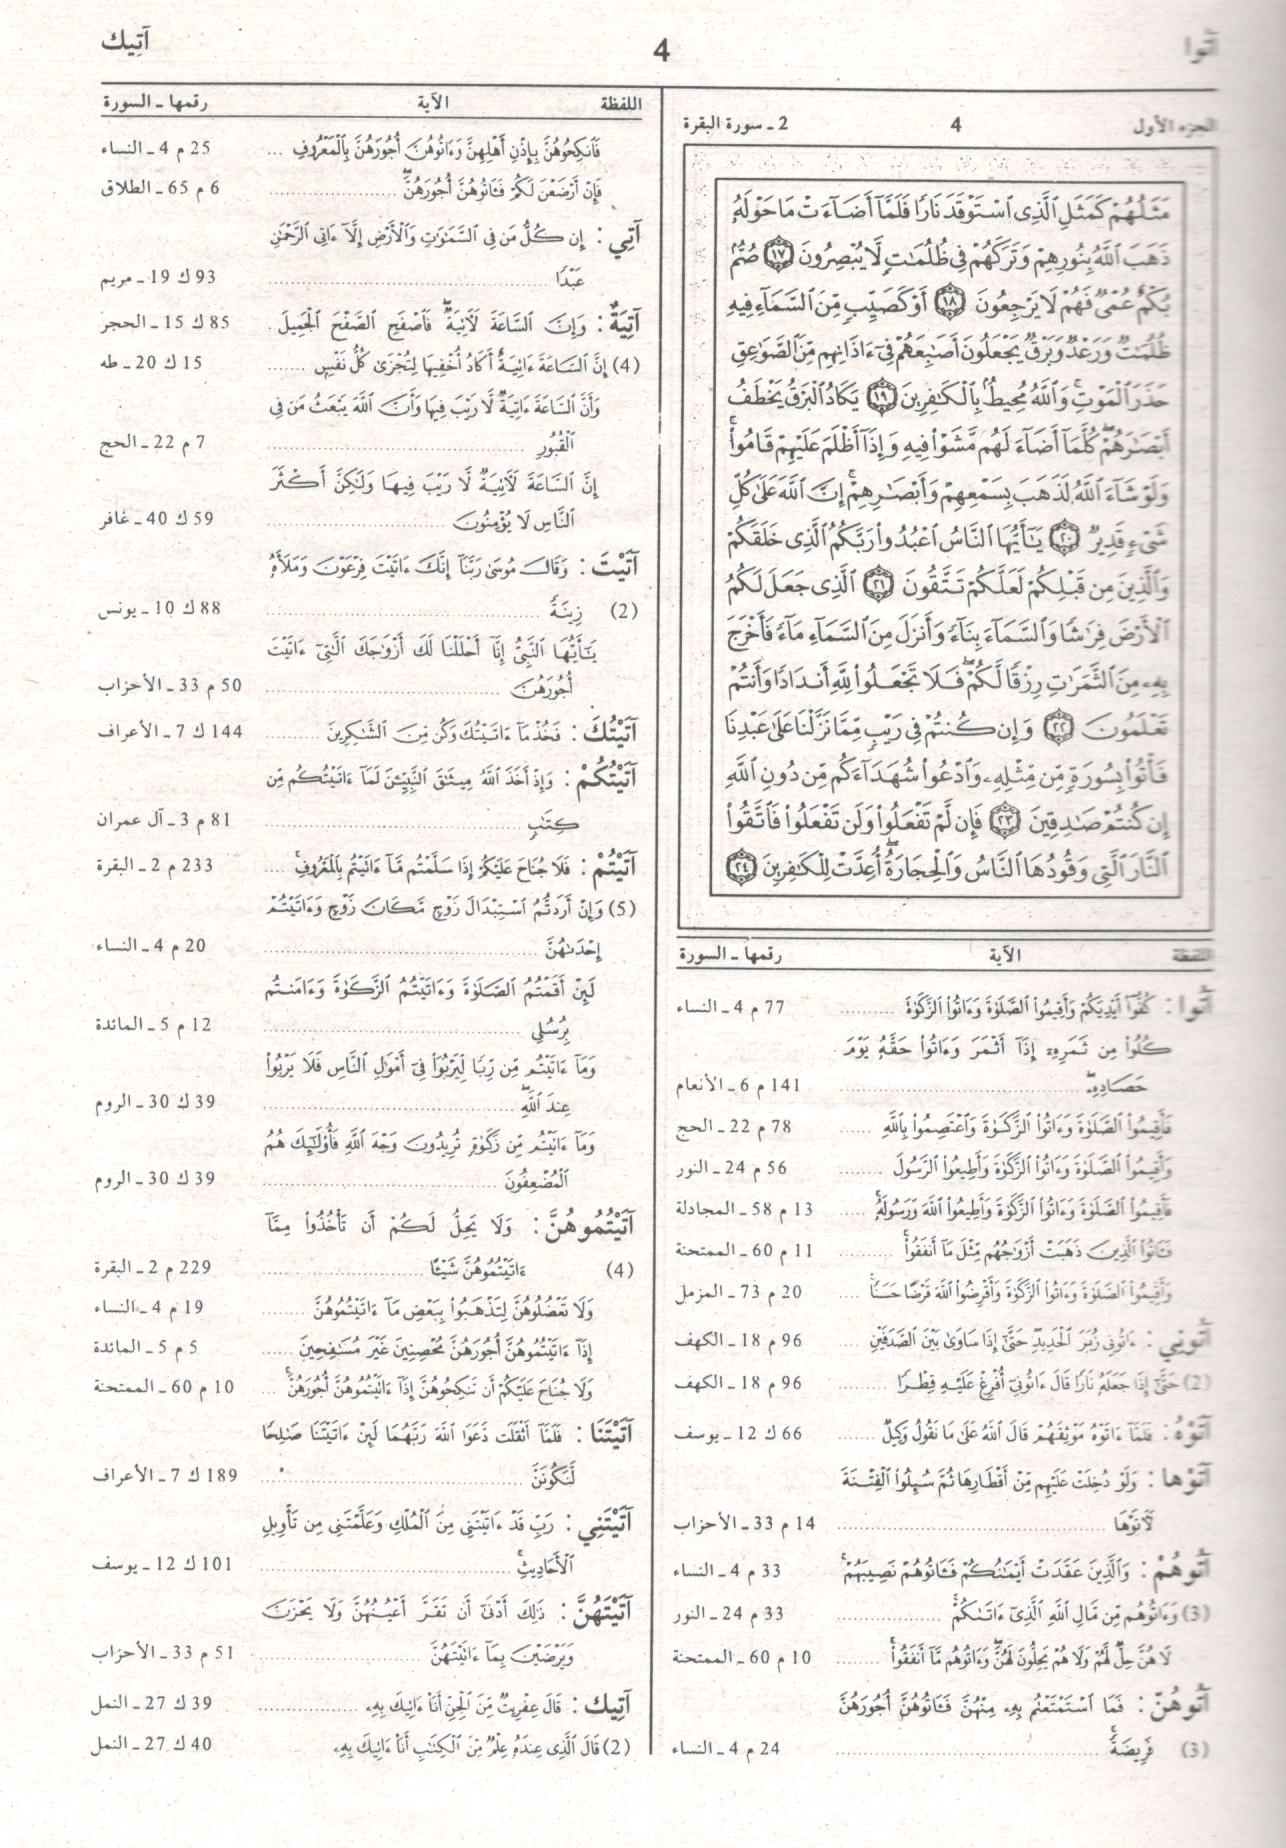 آتوا
4
آتيك
الجزء الأول
4
2 ـ سورة البقرة
مَثَلُهُمْ كَمَثَلِ الَّذِى اسْتَوْقَدَ نَارًا فَلَمَّآ أَضَآءَتْ مَا حَوْلَهُۥ
ذَهَبَ اللَّهُ بِنُورِهِمْ وَتَرَكَهُمْ فِى ظُلُمَٰتٍ لَّا يُبْصِرُونَ ﴿١٧﴾ صُمٌّۢ
بُكْمٌ عُمْىٌ فَهُمْ لَا يَرْجِعُونَ ﴿١٨﴾ أَوْ كَصَيِّبٍ مِّنَ السَّمَآءِ فِيهِ
ظُلُمَٰتٌ وَرَعْدٌ وَبَرْقٌ يَجْعَلُونَ أَصَٰبِعَهُمْ فِىٓ ءَاذَانِهِم مِّنَ الصَّوَٰعِقِ
حَذَرَ الْمَوْتِ ۚ وَاللَّهُ مُحِيطٌۢ بِالْكَٰفِرِينَ ﴿١٩﴾ يَكَادُ الْبَرْقُ يَخْطَفُ
أَبْصَٰرَهُمْ ۖ كُلَّمَآ أَضَآءَ لَهُم مَّشَوْا۟ فِيهِ وَإِذَآ أَظْلَمَ عَلَيْهِمْ قَامُوا۟ ۚ
وَلَوْ شَآءَ اللَّهُ لَذَهَبَ بِسَمْعِهِمْ وَأَبْصَٰرِهِمْ ۚ إِنَّ اللَّهَ عَلَىٰ كُلِّ
شَىْءٍ قَدِيرٌ ﴿٢٠﴾ يَٰٓأَيُّهَا النَّاسُ اعْبُدُوا۟ رَبَّكُمُ الَّذِى خَلَقَكُمْ
وَالَّذِينَ مِن قَبْلِكُمْ لَعَلَّكُمْ تَتَّقُونَ ﴿٢١﴾ الَّذِى جَعَلَ لَكُمُ
الْأَرْضَ فِرَٰشًا وَالسَّمَآءَ بِنَآءً وَأَنزَلَ مِنَ السَّمَآءِ مَآءً فَأَخْرَجَ
بِهِۦ مِنَ الثَّمَرَٰتِ رِزْقًا لَّكُمْ ۖ فَلَا تَجْعَلُوا۟ لِلَّهِ أَندَادًا وَأَنتُمْ
تَعْلَمُونَ ﴿٢٢﴾ وَإِن كُنتُمْ فِى رَيْبٍ مِّمَّا نَزَّلْنَا عَلَىٰ عَبْدِنَا
فَأْتُوا۟ بِسُورَةٍ مِّن مِّثْلِهِۦ وَادْعُوا۟ شُهَدَآءَكُم مِّن دُونِ اللَّهِ
إِن كُنتُمْ صَٰدِقِينَ ﴿٢٣﴾ فَإِن لَّمْ تَفْعَلُوا۟ وَلَن تَفْعَلُوا۟ فَاتَّقُوا۟
النَّارَ الَّتِى وَقُودُهَا النَّاسُ وَالْحِجَارَةُ ۖ أُعِدَّتْ لِلْكَٰفِرِينَ ﴿٢٤﴾
اللفظة الآية رقمها ـ السورة
آتُوا : كُفُّوٓا۟ أَيْدِيَكُمْ وَأَقِيمُوا۟ الصَّلَوٰةَ وَءَاتُوا۟ الزَّكَوٰةَ .......... 77 م 4 ـ النساء
كُلُوا۟ مِن ثَمَرِهِۦٓ إِذَآ أَثْمَرَ وَءَاتُوا۟ حَقَّهُۥ يَوْمَ
حَصَادِهِۦ ۖ .......... 141 م 6 ـ الأنعام
فَأَقِيمُوا۟ الصَّلَوٰةَ وَءَاتُوا۟ الزَّكَوٰةَ وَاعْتَصِمُوا۟ بِاللَّهِ ...... 78 م 22 ـ الحج
وَأَقِيمُوا۟ الصَّلَوٰةَ وَءَاتُوا۟ الزَّكَوٰةَ وَأَطِيعُوا۟ الرَّسُولَ ........ 56 م 24 ـ النور
فَأَقِيمُوا۟ الصَّلَوٰةَ وَءَاتُوا۟ الزَّكَوٰةَ وَأَطِيعُوا۟ اللَّهَ وَرَسُولَهُۥ ۚ ..... 13 م 58 ـ المجادلة
فَـَٔاتُوا۟ الَّذِينَ ذَهَبَتْ أَزْوَٰجُهُم مِّثْلَ مَآ أَنفَقُوا۟ ۚ .......... 11 م 60 ـ الممتحنة
وَأَقِيمُوا۟ الصَّلَوٰةَ وَءَاتُوا۟ الزَّكَوٰةَ وَأَقْرِضُوا۟ اللَّهَ قَرْضًا حَسَنًا ۚ .... 20 م 73 ـ المزمل
آتُونِي : ءَاتُونِى زُبَرَ الْحَدِيدِ ۖ حَتَّىٰٓ إِذَا سَاوَىٰ بَيْنَ الصَّدَفَيْنِ .... 96 م 18 ـ الكهف
(2) حَتَّىٰٓ إِذَا جَعَلَهُۥ نَارًا قَالَ ءَاتُونِىٓ أُفْرِغْ عَلَيْهِ قِطْرًا ........ 96 م 18 ـ الكهف
آتَوْهُ : فَلَمَّآ ءَاتَوْهُ مَوْثِقَهُمْ قَالَ اللَّهُ عَلَىٰ مَا نَقُولُ وَكِيلٌ ....... 66 ك 12 ـ يوسف
آتَوْها : وَلَوْ دُخِلَتْ عَلَيْهِم مِّنْ أَقْطَارِهَا ثُمَّ سُئِلُوا۟ الْفِتْنَةَ
لَـَٔاتَوْهَا .......... 14 م 33 ـ الأحزاب
آتُوهُمْ : وَالَّذِينَ عَقَدَتْ أَيْمَٰنُكُمْ فَـَٔاتُوهُمْ نَصِيبَهُمْ ۚ 33 م 4 ـ النساء
(3) وَءَاتُوهُم مِّن مَّالِ اللَّهِ الَّذِىٓ ءَاتَىٰكُمْ ۚ .......... 33 م 24 ـ النور
لَا هُنَّ حِلٌّ لَّهُمْ وَلَا هُمْ يَحِلُّونَ لَهُنَّ ۖ وَءَاتُوهُم مَّآ أَنفَقُوا۟ ۚ ........ 10 م 60 ـ الممتحنة
آتُوهُنَّ : فَمَا اسْتَمْتَعْتُم بِهِۦ مِنْهُنَّ فَـَٔاتُوهُنَّ أُجُورَهُنَّ
(3) فَرِيضَةً ۚ .......... 24 م 4 ـ النساء
اللفظة الآية رقمها ـ السورة
فَانكِحُوهُنَّ بِإِذْنِ أَهْلِهِنَّ وَءَاتُوهُنَّ أُجُورَهُنَّ بِالْمَعْرُوفِ ... 25 م 4 ـ النساء
فَإِنْ أَرْضَعْنَ لَكُمْ فَـَٔاتُوهُنَّ أُجُورَهُنَّ ۖ .......... 6 م 65 ـ الطلاق
آتِي : إِن كُلُّ مَن فِى السَّمَٰوَٰتِ وَالْأَرْضِ إِلَّآ ءَاتِى الرَّحْمَٰنِ
عَبْدًا .......... 93 ك 19 ـ مريم
آتِيَةٌ : وَإِنَّ السَّاعَةَ لَـَٔاتِيَةٌ ۖ فَاصْفَحِ الصَّفْحَ الْجَمِيلَ 85 ك 15 ـ الحجر
(4) إِنَّ السَّاعَةَ ءَاتِيَةٌ أَكَادُ أُخْفِيهَا لِتُجْزَىٰ كُلُّ نَفْسٍۭ ....... 15 ك 20 ـ طه
وَأَنَّ السَّاعَةَ ءَاتِيَةٌ لَّا رَيْبَ فِيهَا وَأَنَّ اللَّهَ يَبْعَثُ مَن فِى
الْقُبُورِ .......... 7 م 22 ـ الحج
إِنَّ السَّاعَةَ لَـَٔاتِيَةٌ لَّا رَيْبَ فِيهَا وَلَٰكِنَّ أَكْثَرَ
النَّاسِ لَا يُؤْمِنُونَ .......... 59 ك 40 ـ غافر
آتَيْتَ : وَقَالَ مُوسَىٰ رَبَّنَآ إِنَّكَ ءَاتَيْتَ فِرْعَوْنَ وَمَلَأَهُۥ
(2) زِينَةً .......... 88 ك 10 ـ يونس
يَٰٓأَيُّهَا النَّبِىُّ إِنَّآ أَحْلَلْنَا لَكَ أَزْوَٰجَكَ الَّٰتِىٓ ءَاتَيْتَ
أُجُورَهُنَّ .......... 50 م 33 ـ الأحزاب
آتَيْتُكَ : فَخُذْ مَآ ءَاتَيْتُكَ وَكُن مِّنَ الشَّٰكِرِينَ .......... 144 ك 7 ـ الأعراف
آتَيْتُكُمْ : وَإِذْ أَخَذَ اللَّهُ مِيثَٰقَ النَّبِيِّـۧنَ لَمَآ ءَاتَيْتُكُم مِّن
كِتَٰبٍ .......... 81 م 3 ـ آل عمران
آتَيْتُمْ : فَلَا جُنَاحَ عَلَيْكُمْ إِذَا سَلَّمْتُم مَّآ ءَاتَيْتُم بِالْمَعْرُوفِ ۗ .... 233 م 2 ـ البقرة
(5) وَإِنْ أَرَدتُّمُ اسْتِبْدَالَ زَوْجٍ مَّكَانَ زَوْجٍ وَءَاتَيْتُمْ
إِحْدَىٰهُنَّ .......... 20 م 4 ـ النساء
لَئِنْ أَقَمْتُمُ الصَّلَوٰةَ وَءَاتَيْتُمُ الزَّكَوٰةَ وَءَامَنتُم
بِرُسُلِى .......... 12 م 5 ـ المائدة
وَمَآ ءَاتَيْتُم مِّن رِّبًا لِّيَرْبُوَا۟ فِىٓ أَمْوَٰلِ النَّاسِ فَلَا يَرْبُوا۟
عِندَ اللَّهِ ۖ .......... 39 ك 30 ـ الروم
وَمَآ ءَاتَيْتُم مِّن زَكَوٰةٍ تُرِيدُونَ وَجْهَ اللَّهِ فَأُو۟لَٰٓئِكَ هُمُ
الْمُضْعِفُونَ .......... 39 ك 30 ـ الروم
آتَيْتُمُوهُنَّ : وَلَا يَحِلُّ لَكُمْ أَن تَأْخُذُوا۟ مِمَّآ
(4) ءَاتَيْتُمُوهُنَّ شَيْـًٔا .......... 229 م 2 ـ البقرة
وَلَا تَعْضُلُوهُنَّ لِتَذْهَبُوا۟ بِبَعْضِ مَآ ءَاتَيْتُمُوهُنَّ ........ 19 م 4 ـ النساء
إِذَآ ءَاتَيْتُمُوهُنَّ أُجُورَهُنَّ مُحْصِنِينَ غَيْرَ مُسَٰفِحِينَ ...... 5 م 5 ـ المائدة
وَلَا جُنَاحَ عَلَيْكُمْ أَن تَنكِحُوهُنَّ إِذَآ ءَاتَيْتُمُوهُنَّ أُجُورَهُنَّ ۚ ... 10 م 60 ـ الممتحنة
آتَيْتَنَا : فَلَمَّآ أَثْقَلَت دَّعَوَا اللَّهَ رَبَّهُمَا لَئِنْ ءَاتَيْتَنَا صَٰلِحًا
لَّنَكُونَنَّ .......... 189 ك 7 ـ الأعراف
آتَيْتَنِي : رَبِّ قَدْ ءَاتَيْتَنِى مِنَ الْمُلْكِ وَعَلَّمْتَنِى مِن تَأْوِيلِ
الْأَحَادِيثِ ۚ .......... 101 ك 12 ـ يوسف
آتَيْتَهُنَّ : ذَٰلِكَ أَدْنَىٰٓ أَن تَقَرَّ أَعْيُنُهُنَّ وَلَا يَحْزَنَّ
وَيَرْضَيْنَ بِمَآ ءَاتَيْتَهُنَّ .......... 51 م 33 ـ الأحزاب
آتِيك : قَالَ عِفْرِيتٌ مِّنَ الْجِنِّ أَنَا۠ ءَاتِيكَ بِهِۦ .......... 39 ك 27 ـ النمل
(2) قَالَ الَّذِى عِندَهُۥ عِلْمٌ مِّنَ الْكِتَٰبِ أَنَا۠ ءَاتِيكَ بِهِۦ 40 ك 27 ـ النمل